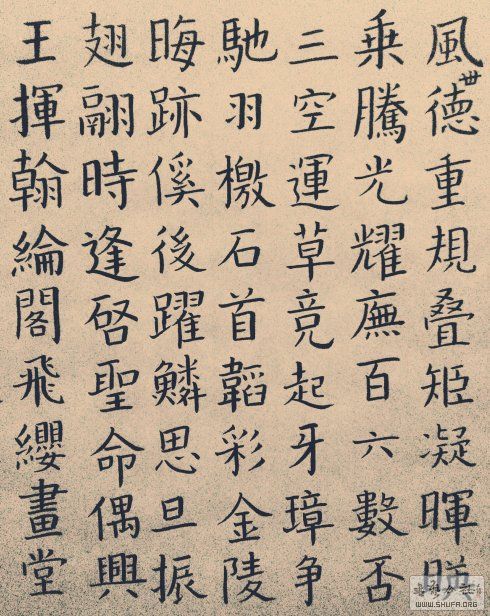 風世德重規叠矩凝暉
乘騰光耀廡百六數否
三空運草竞起牙璋争
馳羽檄石首韜彩金陵
晦跡傒後躍鱗思旦振
翅翮時逢啓聖命偶興
王揮翰綸閣飛纓畫堂
WWW.SHUFA.ORG